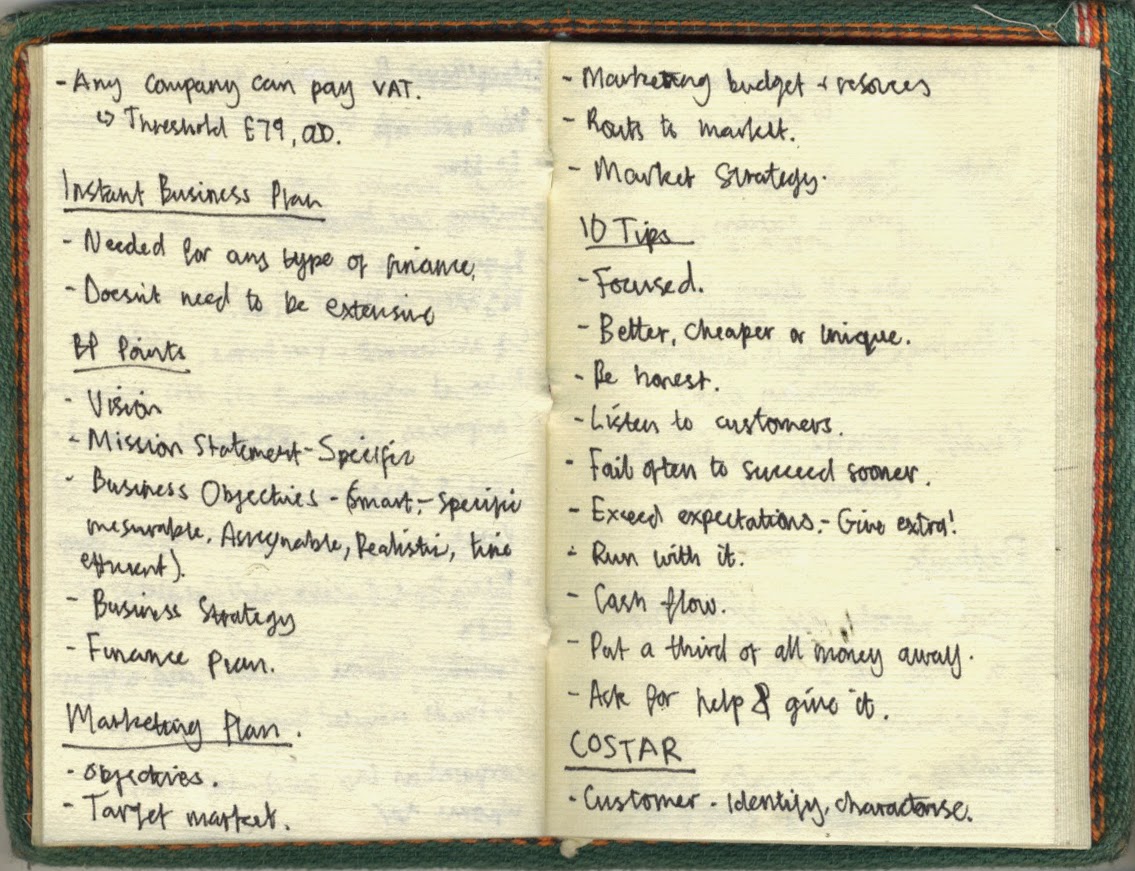 - Any company can pay VAT.
↳ Threshold £79,000.
Instant Business Plan
- Needed for any type of finance.
- Doesn't need to be extensive
BP Points
- Vision
- Mission Statement - Specific
- Business Objectives - (Smart - Specific
mesurable, Assignable, Realistic, time
efficient).
- Business Strategy
- Finance plan.
Marketing Plan.
- Objectives.
- Target market.
- Marketing budget + resorces
- Routs to market.
- Market Strategy.
10 Tips
- Focused.
- Better, cheaper or unique.
- Be honest.
- Listen to customers.
- Fail often to succeed sooner.
- Exceed expectations. - Give extra!
- Run with it.
- Cash flow.
- Put a third of all money away.
- Ask for help & give it.
COSTAR
- Customer - Identify, characterise.